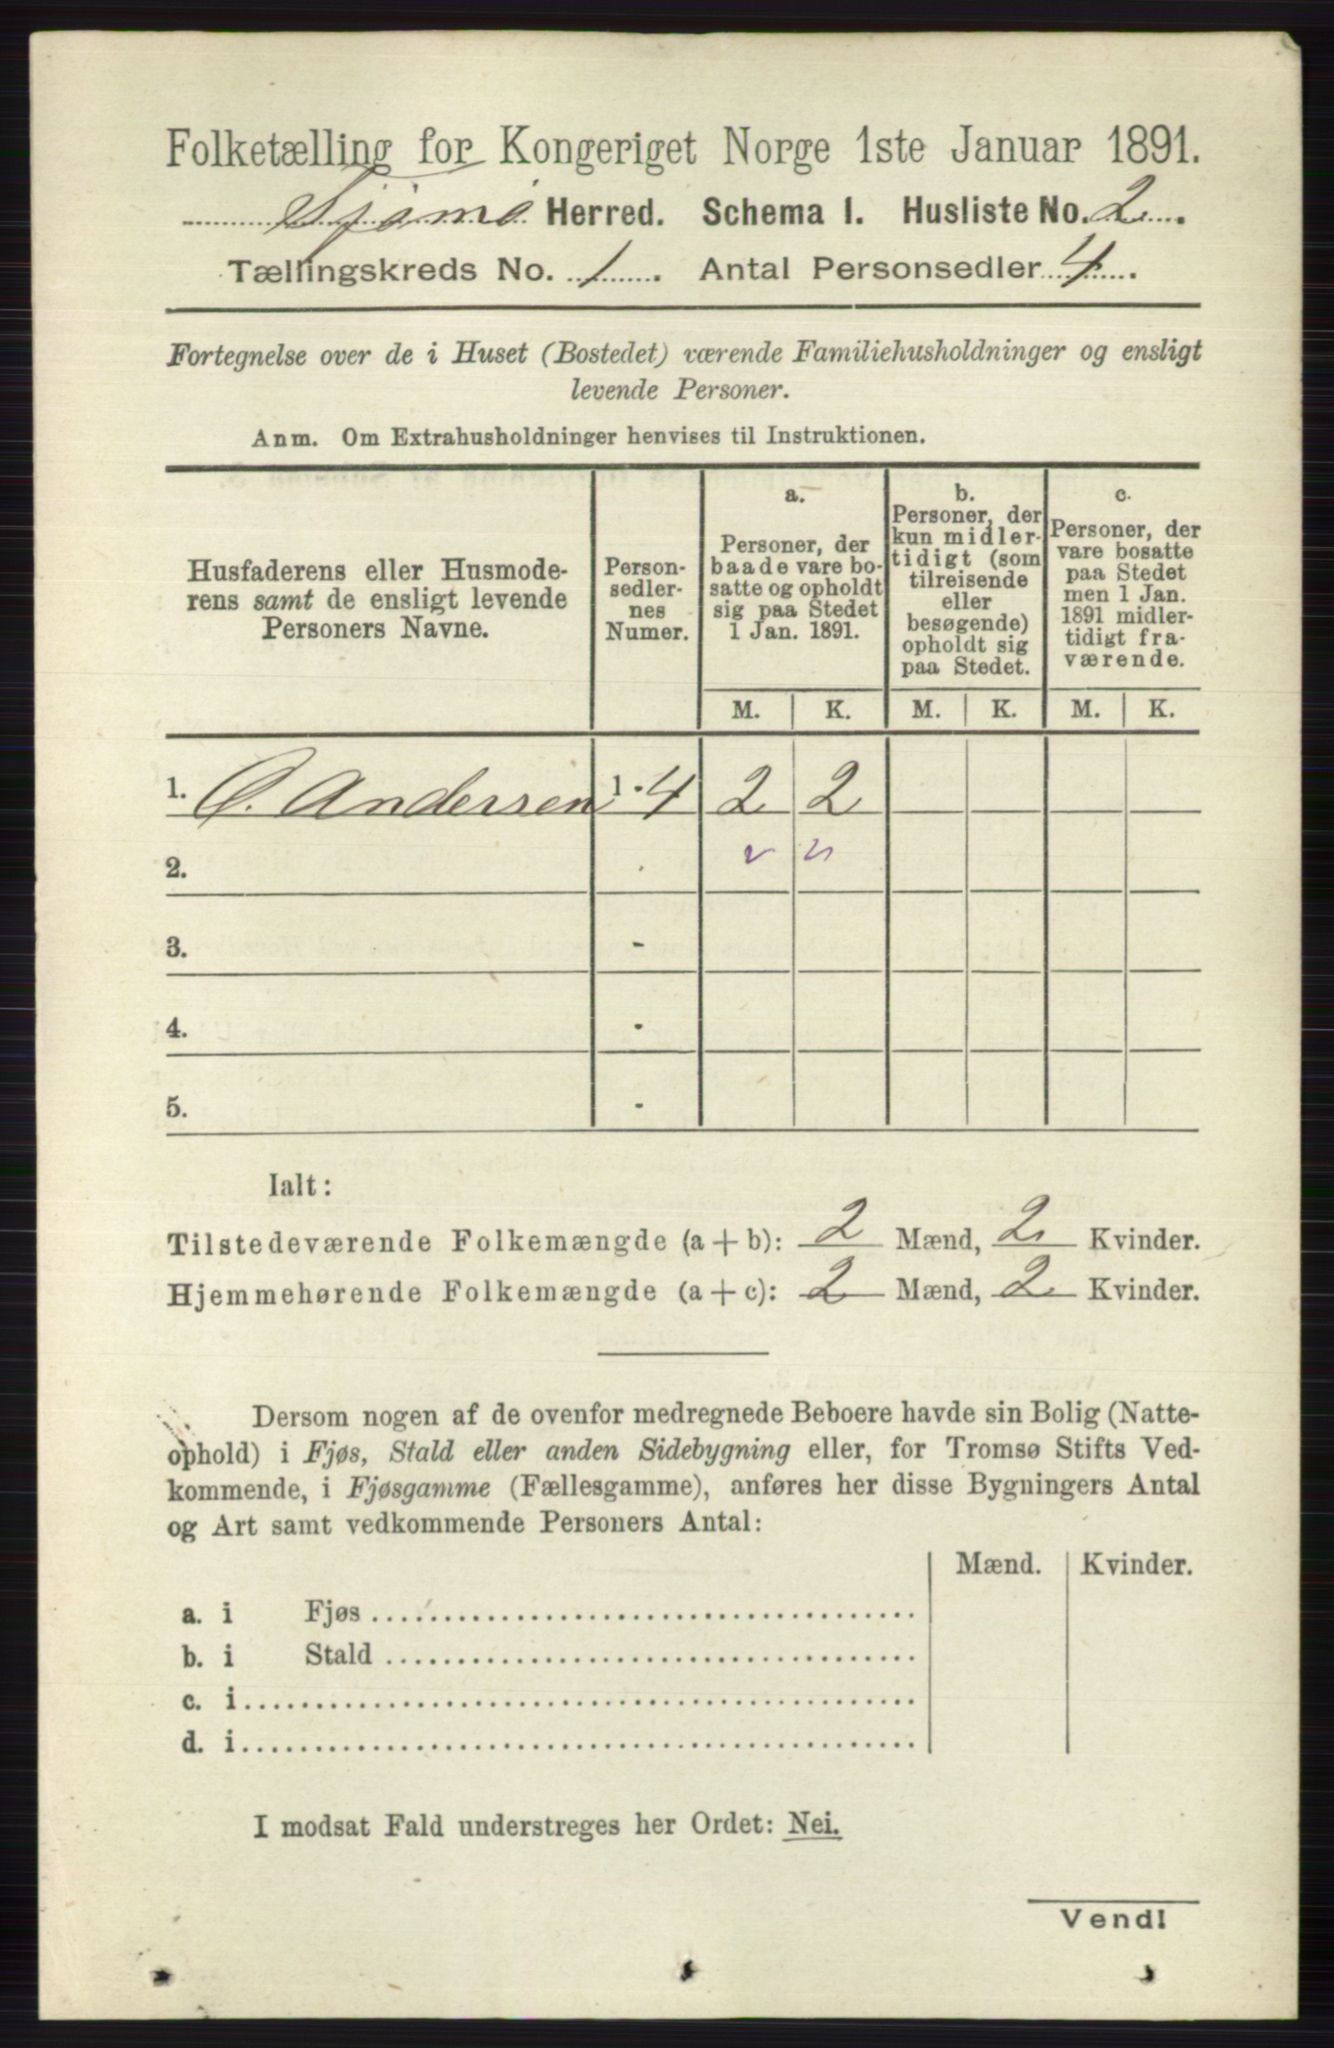 Folketælling for Kongeriget Norge 1ste Januar 1891.
Tjømø Herred. Schema 1. Husliste No. 2
Tællingskreds No. 1. Antal Personsedler 4.
Fortegnelse over de i Huset (Bostedet) værende Familiehusholdninger og ensligt
levende Personer.
Anm. Om Extrahusholdninger henvises til Instruktionen.
Husfaderens eller Husmode-
rens samt de ensligt levende
Personers Navne.
Person-
sedler-
nes
Numer.
a.
Personer, der
baade vare bo-
satte og opholdt
sig paa Stedet
1 Jan. 1891.
b.
Personer, der
kun midler-
tidigt (som
tilreisende
eller
besøgende)
opholdt sig
paa Stedet.
c.
Personer, der
vare bosatte
paa Stedet
men 1 Jan.
1891 midler-
tidigt fra-
værende.
M. K. M. K. M. K.
1. O. Andersen 1 - 4 2 2
2.
3. -
4. -
5. -
Ialt:
Tilstedeværende Folkemængde (a + b): 2 Mænd, 2 Kvinder.
Hjemmehørende Folkemængde (a + c): 2 Mænd, 2 Kvinder.
Dersom nogen af de ovenfor medregnede Beboere havde sin Bolig (Natte-
ophold) i Fjøs, Stald eller anden Sidebygning eller, for Tromsø Stifts Ved-
kommende, i Fjøsgamme (Fællesgamme), anføres her disse Bygningers Antal
og Art samt vedkommende Personers Antal:
Mænd. Kvinder.
a. i Fjøs
b. i Stald
c. i
d. i
I modsat Fald understreges her Ordet: Nei.
Vend!